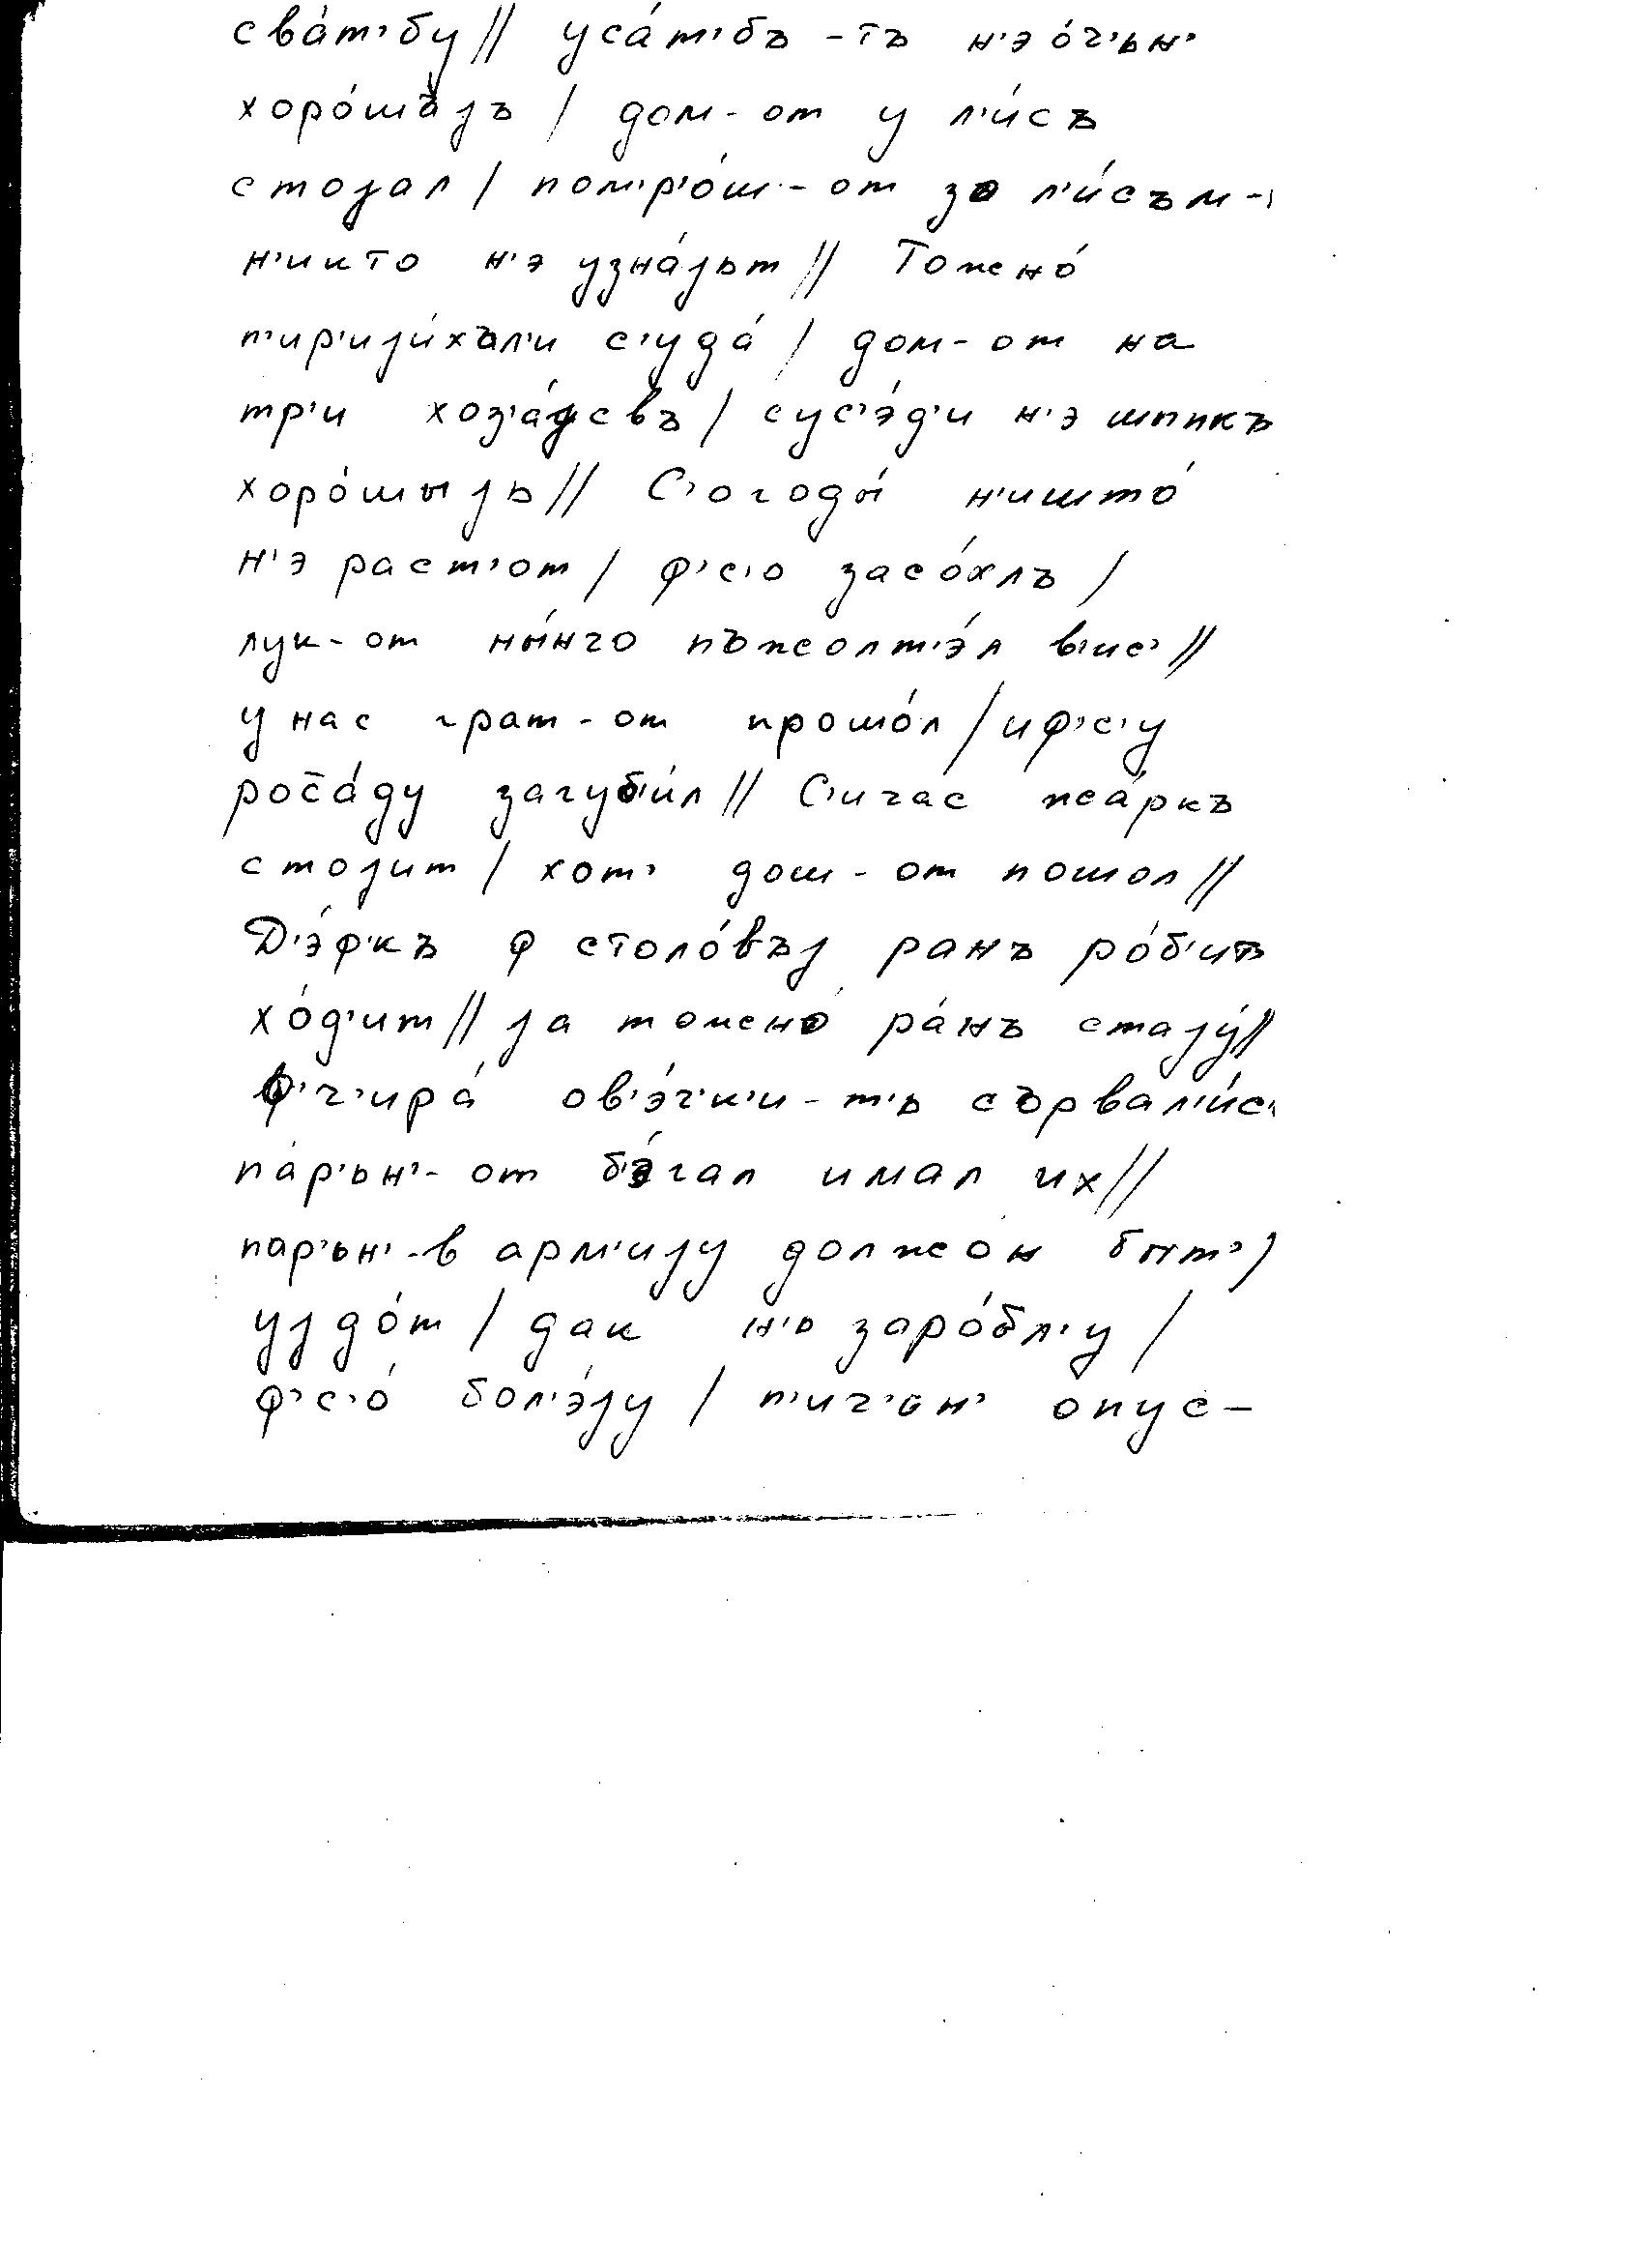 сва́т'бу // уса́т'бъ -тъ н'э о́ч'ьн'
хоро́шъjъ / дом-от у л'и́съ
стоjал / пом'р'о́ш-от за л'и́съм -
н'икто н'э узна́jьт // Тожно́
п'ир'иjи́хъл'и с'уда́ / дом-от на
тр'и хоз'а́jсвъ / сус'э́д'и н'э шыпкъ
хоро́шыjь // С'огоды́ н'ишто́
н'э раст'от / ф'с'о засо́хлъ /
лук-от ны́нчо пъжолт'э́л в'ис' //
у нас град-от прошо́л / и ф'с'у
роса́ду загуб'и́л // С'ича́с жа́ркъ
стоjит / хот' дош-от пошол //
Д'э́ф'къ ф столо́въj ранъ ро́б'ит
хо́д'ит // jа тожно́ ра́нъ стаjу́ //
Ф'ч'ира́ ов'э́ч'к'и-т'ь сървал'и́с'
па́р'ьн'-от б'э́гал имал их //
пар'ьн'-в арм'иjу должо́н быт' /
уjдо́т / дак н'ь заро́бл'у /
ф'с'о́ бол'э́jу / п'ич'ьн' опус-